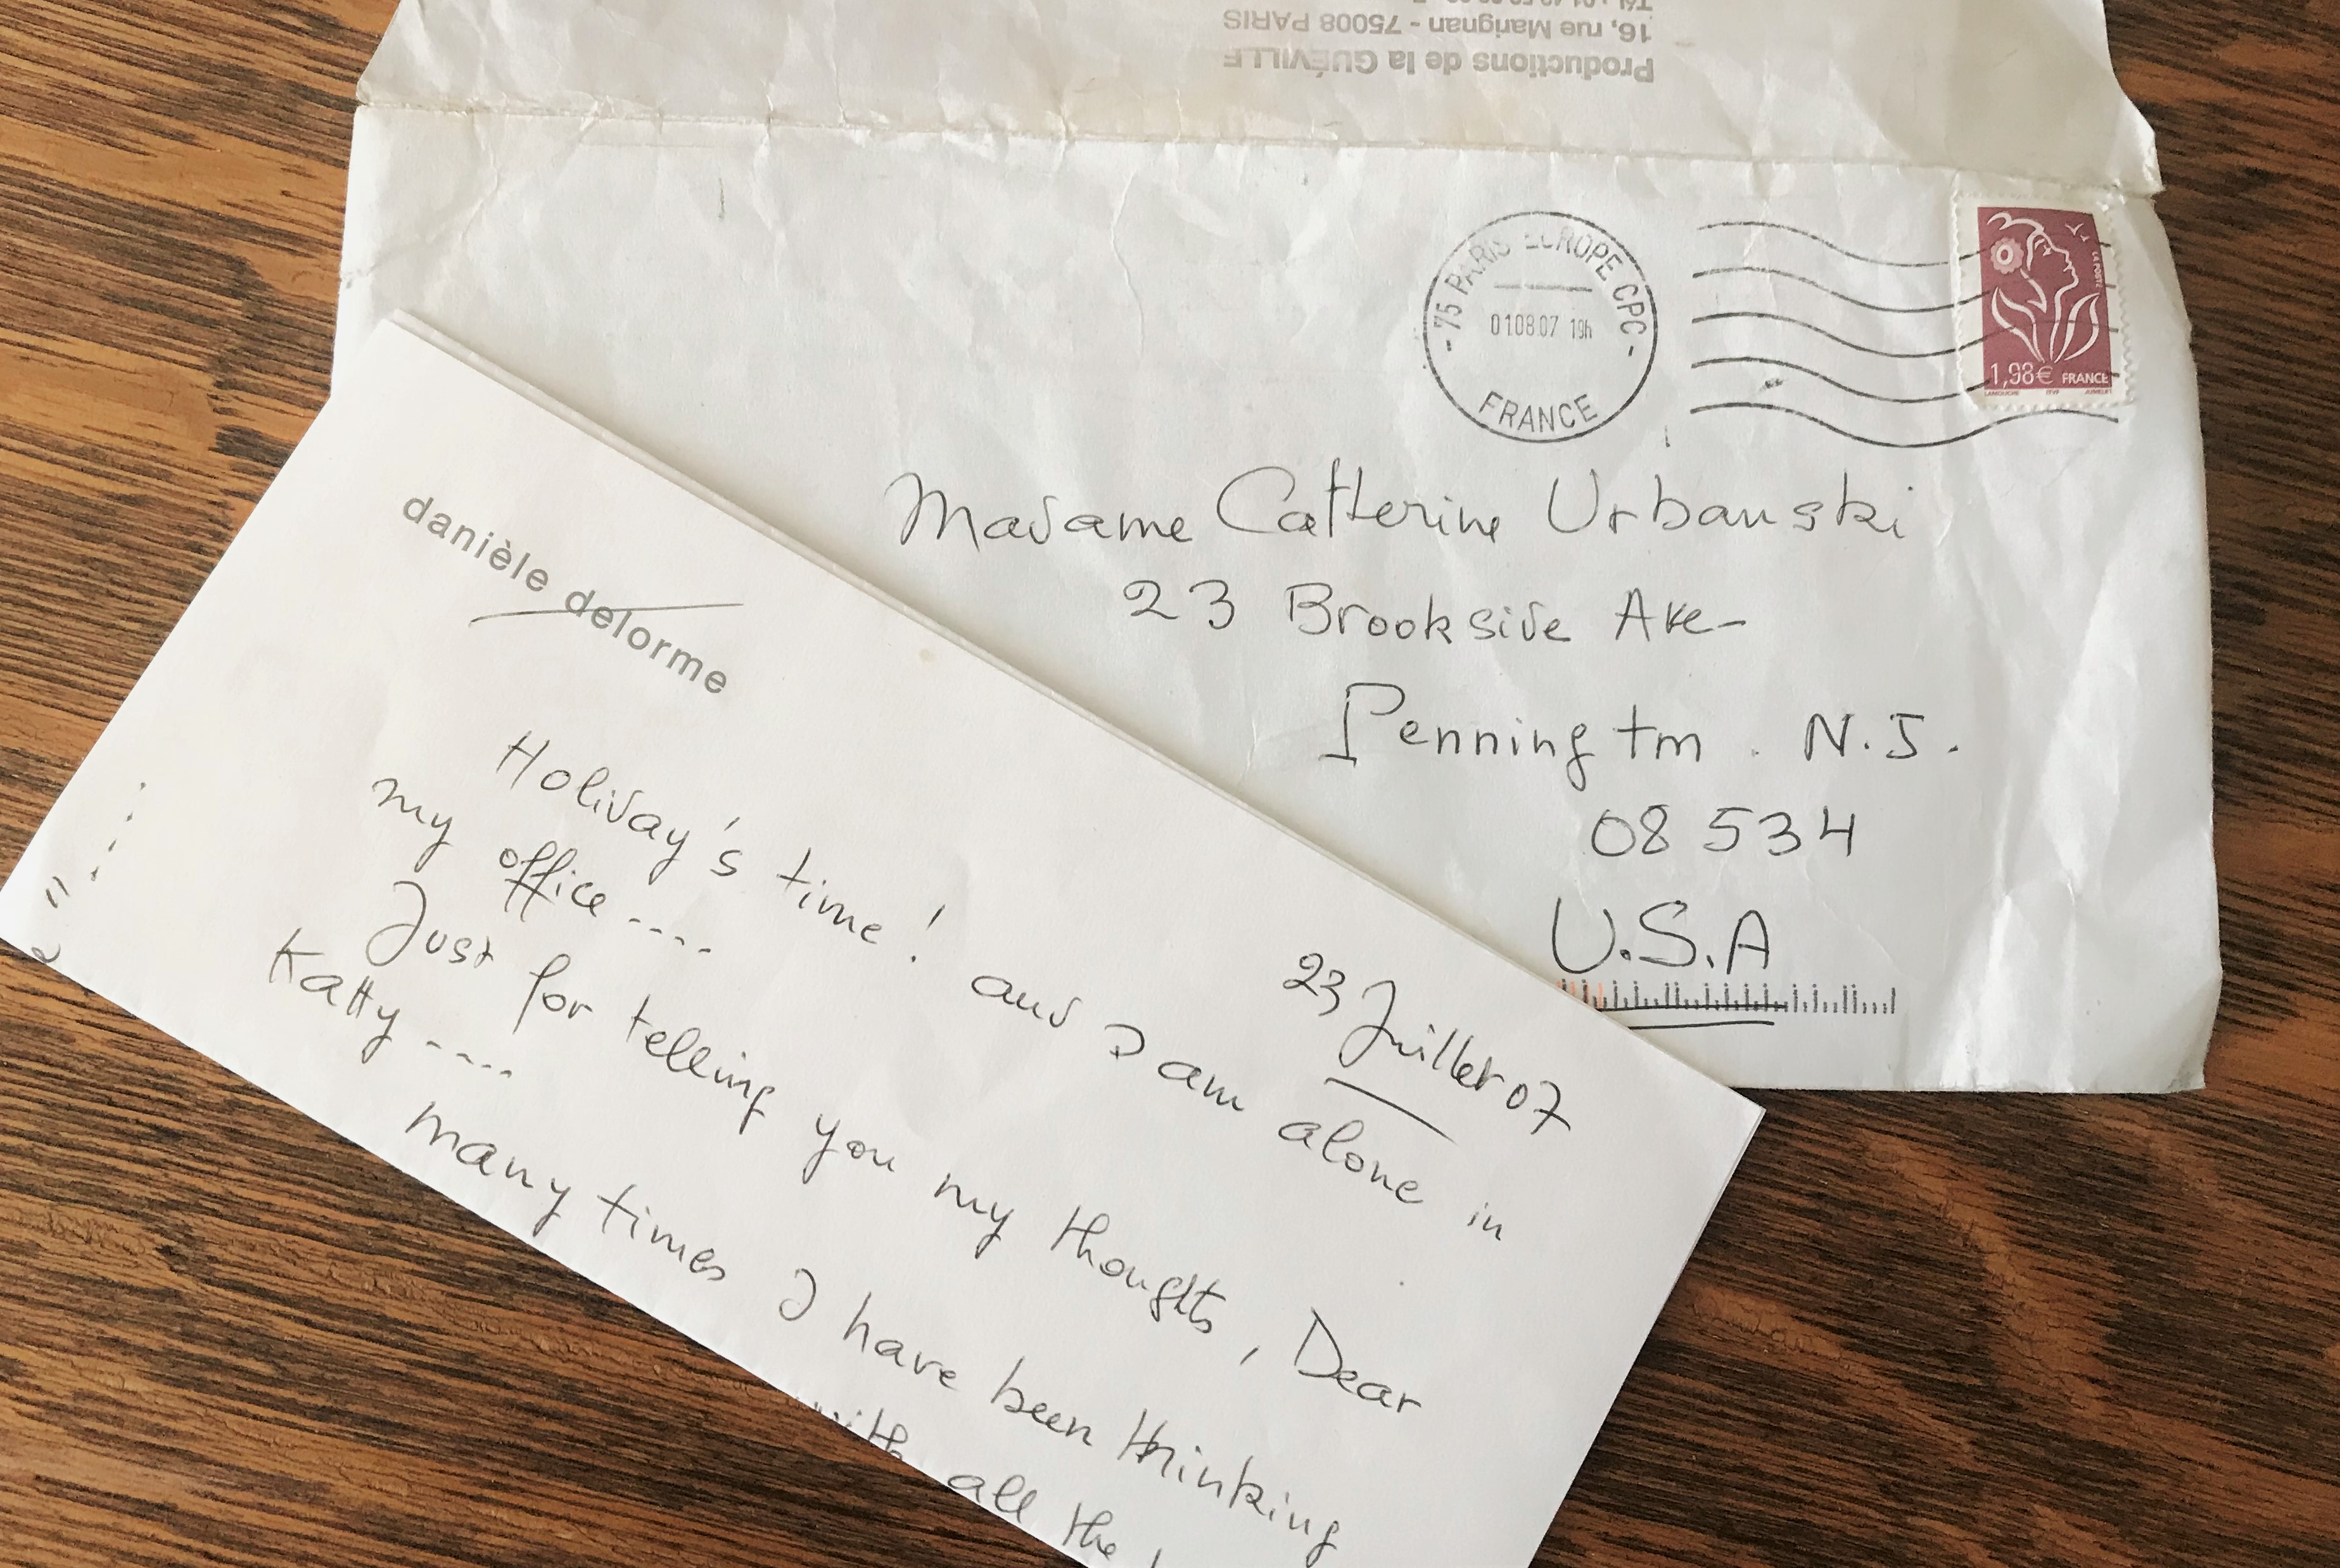 Productions de la GUÉVILLE
16, rue Marignan - 75008 PARIS
75 PARIS EUROPE CPC
010807 19h
FRANCE
LA POSTE
1,98€ FRANCE
LAMOUCHE ITVF JUMELET
Madame Catherine Urbanski
23 Brookside Ave-
Pennington . N.J.
08 534
U.S.A
danièle delorme
23 Juillet 07
Holiday's time ! and I am alone in
my office ....
Just for telling you my thoughts, Dear
Kathy ....
many times I have been thinking
with all the